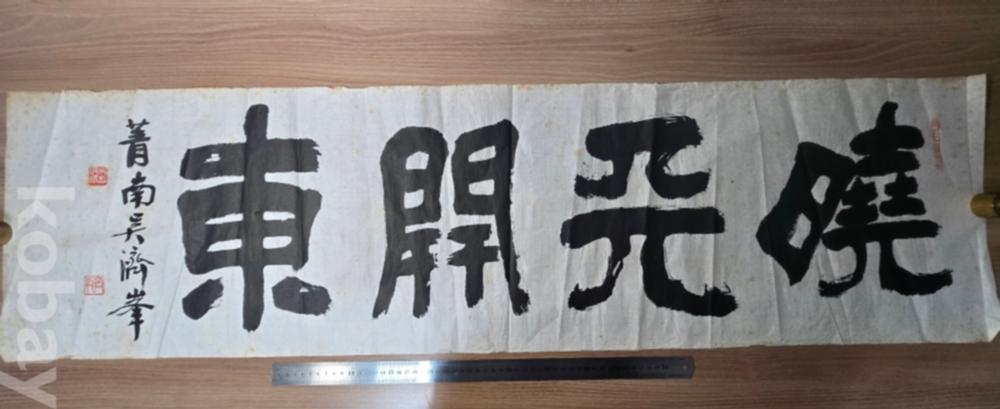 曉開東
菁南吳濟峯
kobay